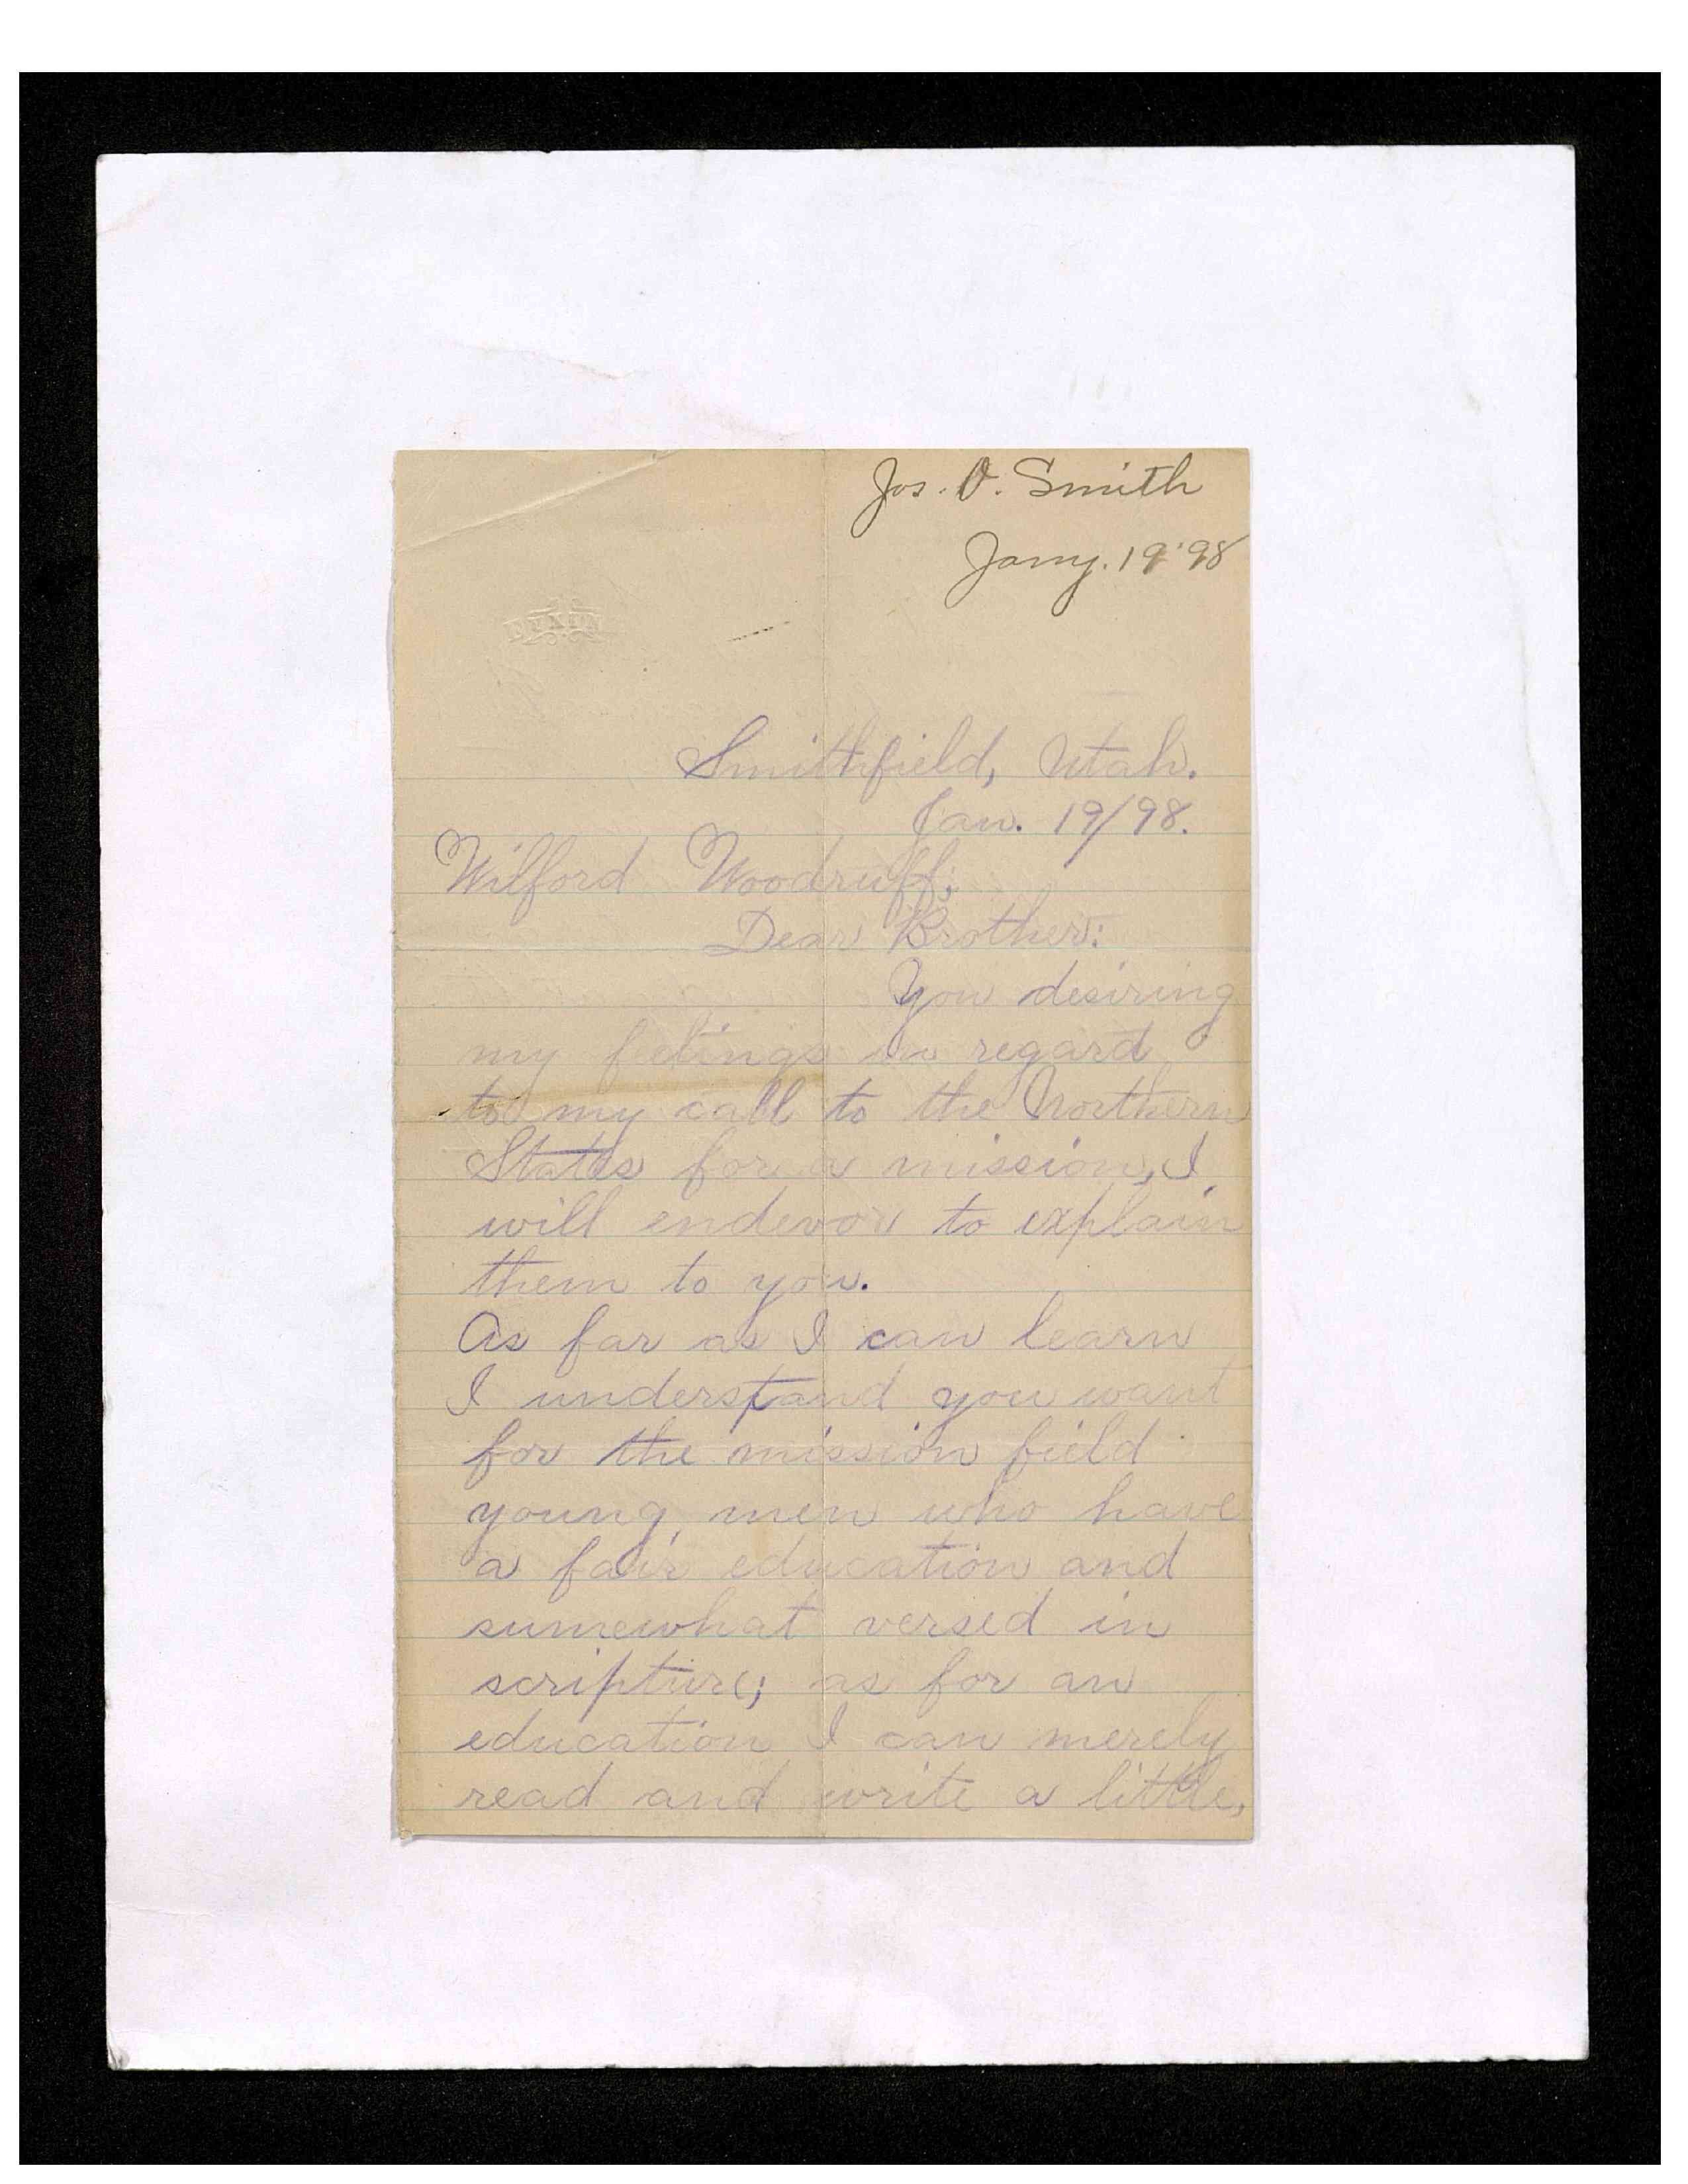 Jos. O. Smith
Jany. 19 '98
Smithfield, Utah.
Jan. 19/98.
Wilford Woodruff;
Dear Brother:
You desiring
my felings in regard
to my call to the Northern
States for a mission, I
will endevor to explain
them to you.
As far as I can learn
I understand you want
for the mission field
young men who have
a fair education and
sumewhat versed in
scripture; as for an
education I can merely
read and write a little,